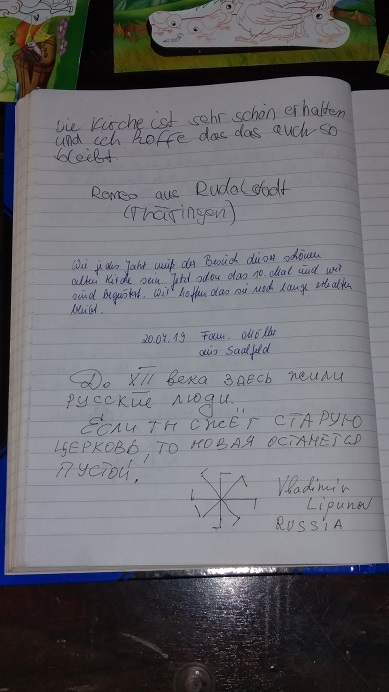 Die Kirche ist sehr schön erhalten
und ich hoffe das das auch so
bleibt.
Romeo aus Rudolstadt
(Thüringen)
Wie jedes Jahr muß der Besuch dieser schönen
alten Kirche sein. Jetzt schon das 10. Mal und wir
sind begeistert. Wir hoffen das sie noch lange erhalten
bleibt.
20.07.19 Fam. Müller
aus Saalfeld
До XII века здесь жили
русские люди.
Если ты сжёг старую
церковь, то новая останется
пустой.
Vladimir
Lipunov
RUSSIA